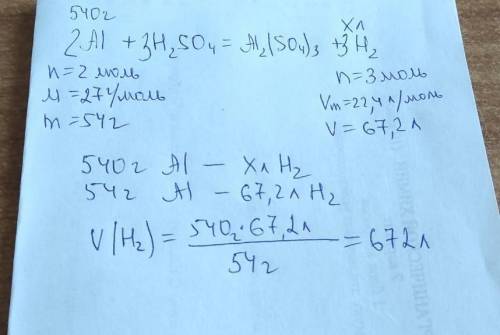 540г
Xл
2Al + 3H₂SO₄ = Al₂(SO₄)₃ + 3H₂
n = 2 моль
n = 3 моль
M = 27 г/моль
Vm = 22,4 л/моль
m = 54г
V = 67,2 л
540г Al — Xл H₂
54г Al — 67,2л H₂
V(H₂) = 540г·67,2л / 54г = 672л